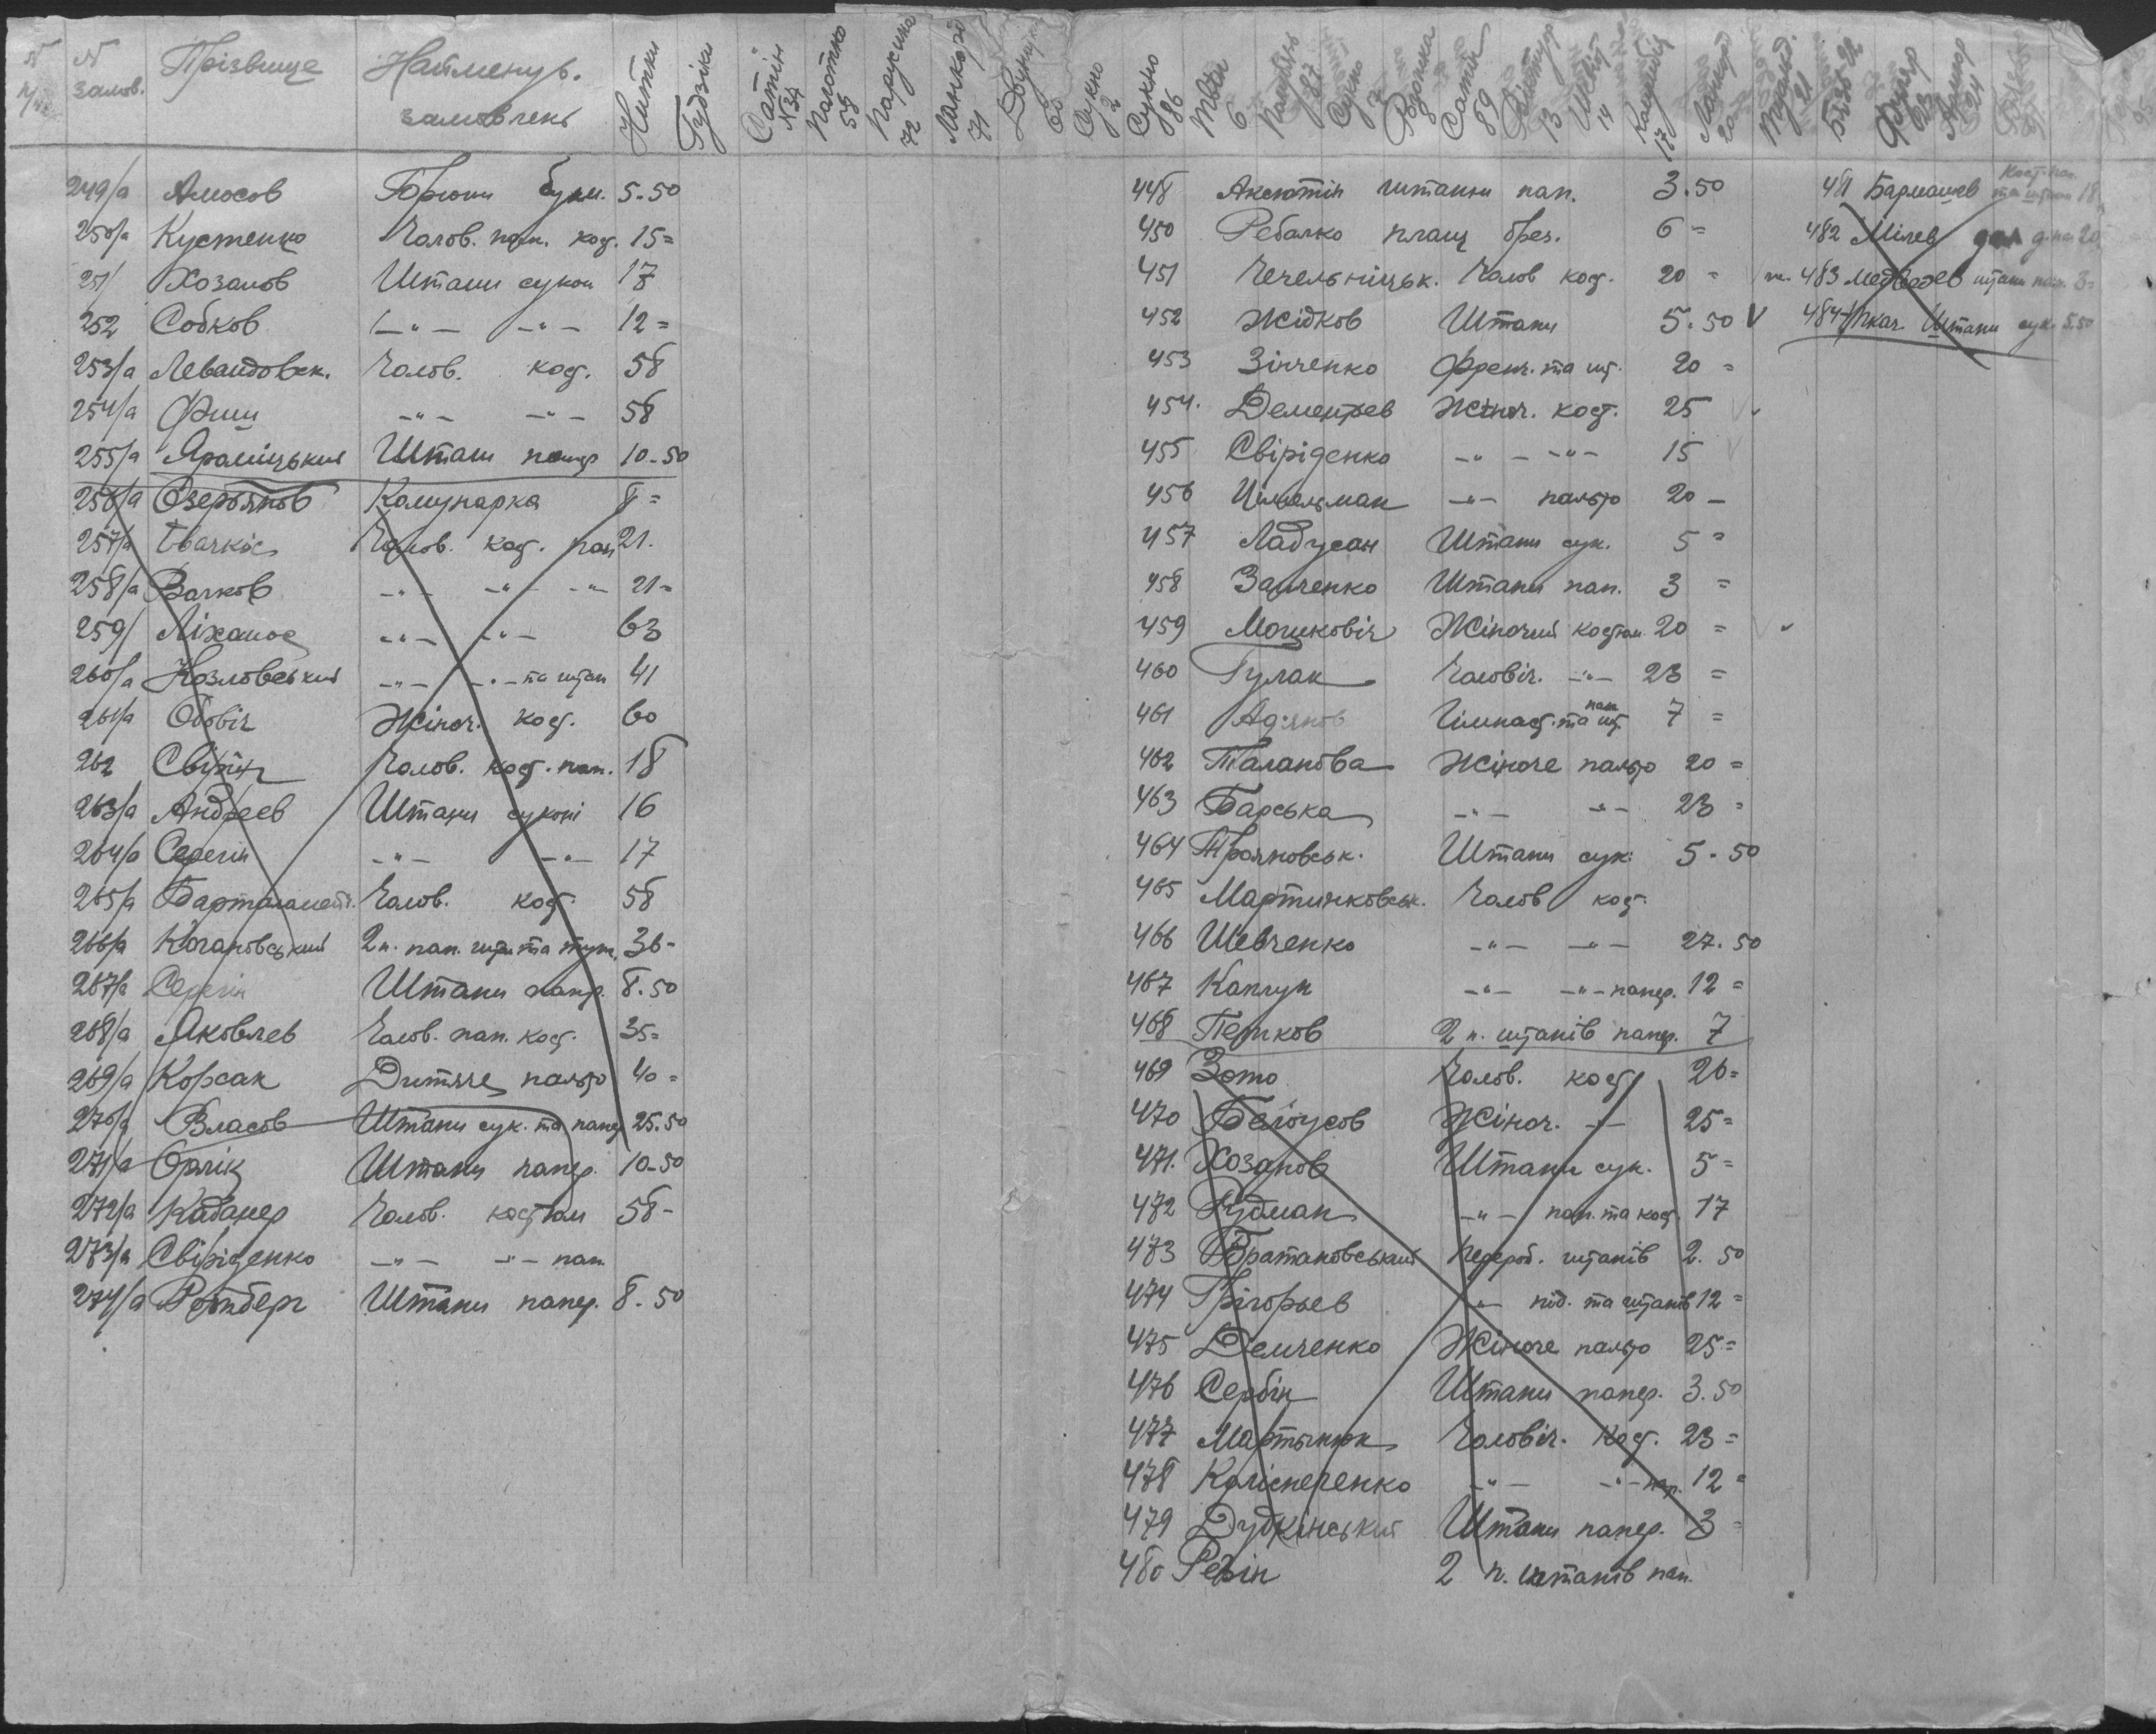 N N залов. Прізвище Найменув. замовлень Нитки Гудзіки Сатін N 34 Полотно 58 Парусина 72 Ланкорд 71 Сукно 2 Сукно 86
249/а Амосов Брюки бум. 5.50
250/а Кустенко Чолов. пап. кост. 15=
251/ Хозанов Штани сукон 17
252 Собков -"- -"- 12=
253/а Левандовск. Чолов. кост. 58
254/а Фиш -"- -"- 58
255/а Яроміцький Штани папер 10-50
256/а Озерьянов Комунарка 8=
257/а Чолов. кост. пап 21.
258/а Вачков -"- -"- -"- 21=
259/ Ліханов -"- -"- 63
260/а Козловський -"- -"- та штан 41
261/а Обовіч Жіноч. кост. 60
262 Чолов. кост. пап. 18
263/а Андреев Штани суконі 16
264/а Серегін -"- -"- 17
265/а Чолов. кост. 58
266/а Кочановський 2 п. пап. штан та 36-
267/а Серегін Штани папер. 8.50
268/а Яковлев Чолов. пап. кост. 35=
269/а Корсак Дитяче пальто 40=
270/а Власов Штани сук. та папер 25.50
271/а Орлік Штани папер. 10-50
272/а Кабанер Чолов. костюм 58-
273/а Свіріденко -"- -"- пап
274/а Ротберг Штани папер. 8.50
Сатін 89 13 14 17 Ланкорд 20 21 22 24
448 Аксютін штани пап. 3.50
450 Ребалко плащ брез. 6=
451 Чечельніцьк. Чолов кост. 20=
452 Жідков Штани 5.50 V
453 Зінченко Френч. та шт. 20=
454. Дементьев Жіноч. кост. 25
455 Свіріденко -"- -"- 15
456 Цімельман -"- пальто 20-
457 Ладусан Штани сук. 5=
458 Заиченко Штани пап. 3=
459 Мошковіч Жіночий костюм 20=
460 Гулак Чоловіч. -"- 23=
461 Гімнаст. та пап. шт. 7=
462 Таланова Жіноче пальто 20=
463 Барська -"- -"- 23=
464 Трояновськ. Штани сук. 5.50
465 Мартинковськ. Чолов кост.
466 Шевченко -"- -"- 27.50
467 Каплун -"- -"- папер. 12=
468 Петков 2 п. штанів папер. 7
469 Зото Чолов. кост 26=
470 Белоусов Жіноч. -"- 25=
471. Хозанов Штани сук. 5=
472 Рудман -"- пап. та кост 17
473 Братановський Перероб. штанів 2.50
474 Грігорьев -"- під. та штанів 12=
475 Демченко Жіноче пальто 25=
476 Сербін Штани папер. 3.50
477 Мартынюк Чоловіч. кост. 23=
478 Коліснеченко -"- -"- пап. 12=
479 Дубкінський Штани папер. 3=
480 Репін 2 п. штанів пап.
481 Бармашев кост. пап. та штани 18
482 Мілев 20
483 Медведев штани пап. 3=
484 Ткач. Штани сук. 5.50